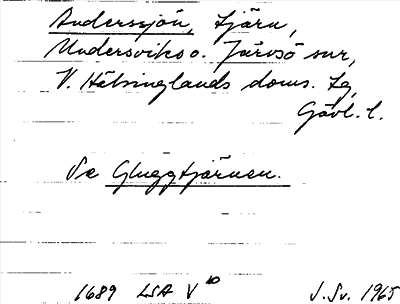 Anderssjön, tjärn,
Undersvik o. Järvsö snr,
V. Hälsinglands doms. tg,
Gävl. l.
Se Gluggtjärnen.
1689 LSA V 10 J. Sv. 1965